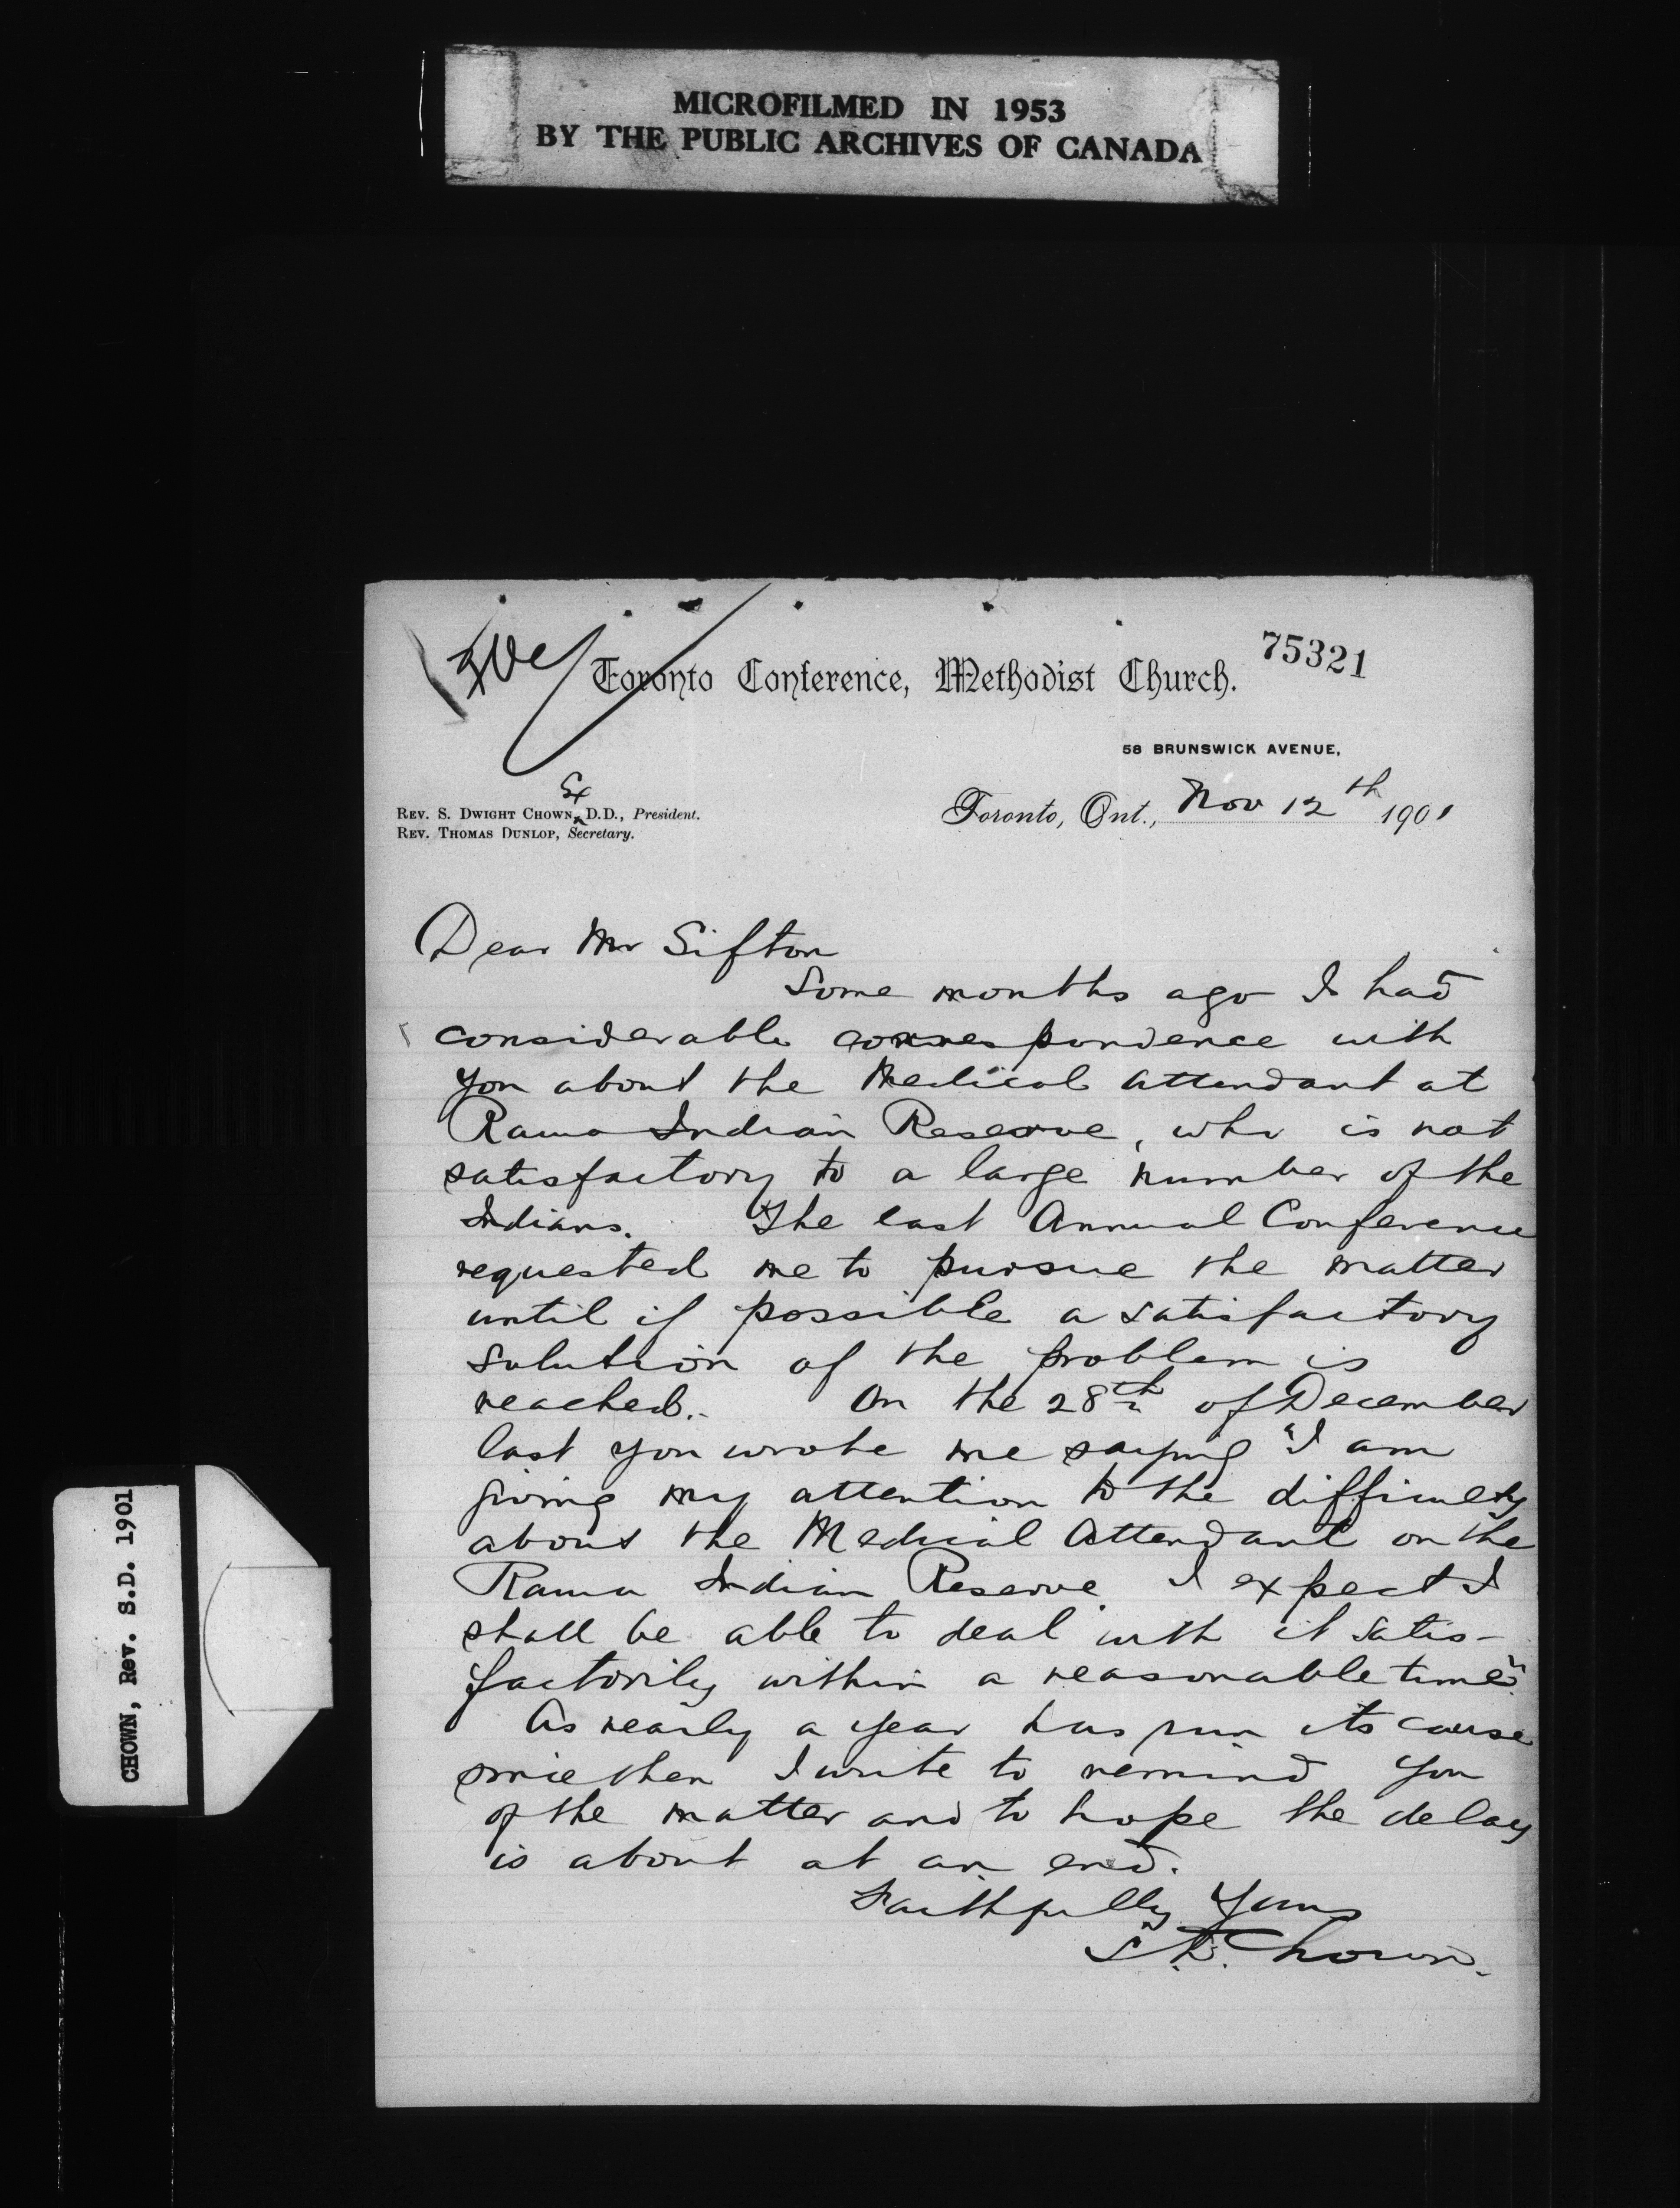 MICROFILMED IN 1953
BY THE PUBLIC ARCHIVES OF CANADA
75321
Toronto Conference, Methodist Church.
58 BRUNSWICK AVENUE,
Ex
REV. S. DWIGHT CHOWN, D.D., President.
REV. THOMAS DUNLOP, Secretary.
Toronto, Ont., Nov 12th 1901
Dear Mr Sifton
Some months ago I had
considerable correspondence with
you about the Medical attendant at
Rama Indian Reserve, who is not
satisfactory to a large number of the
Indians. The last Annual Conference
requested me to pursue the matter
until if possible a satisfactory
solution of the problem is
reached. On the 28th of December
last you wrote me saying "I am
giving my attention to the difficulty
about the Medical Attendant on the
Rama Indian Reserve. I expect I
shall be able to deal with it satis-
factorily within a reasonable time".
As nearly a year has run its course
since then I write to remind you
of the matter and to hope the delay
is about at an end.
Faithfully Yours
S.D. Chown.
CHOWN, Rev. S.D. 1901